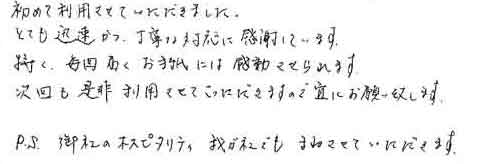 初めて利用させていただきました。
とても迅速かつ、丁寧な対応に感謝しています。
特に、毎回届くお手紙には感動させられます。
次回も是非利用させていただきますので宜しくお願い致します。
P.S. 御社のホスピタリティ、我が社でもまねさせていただきます。